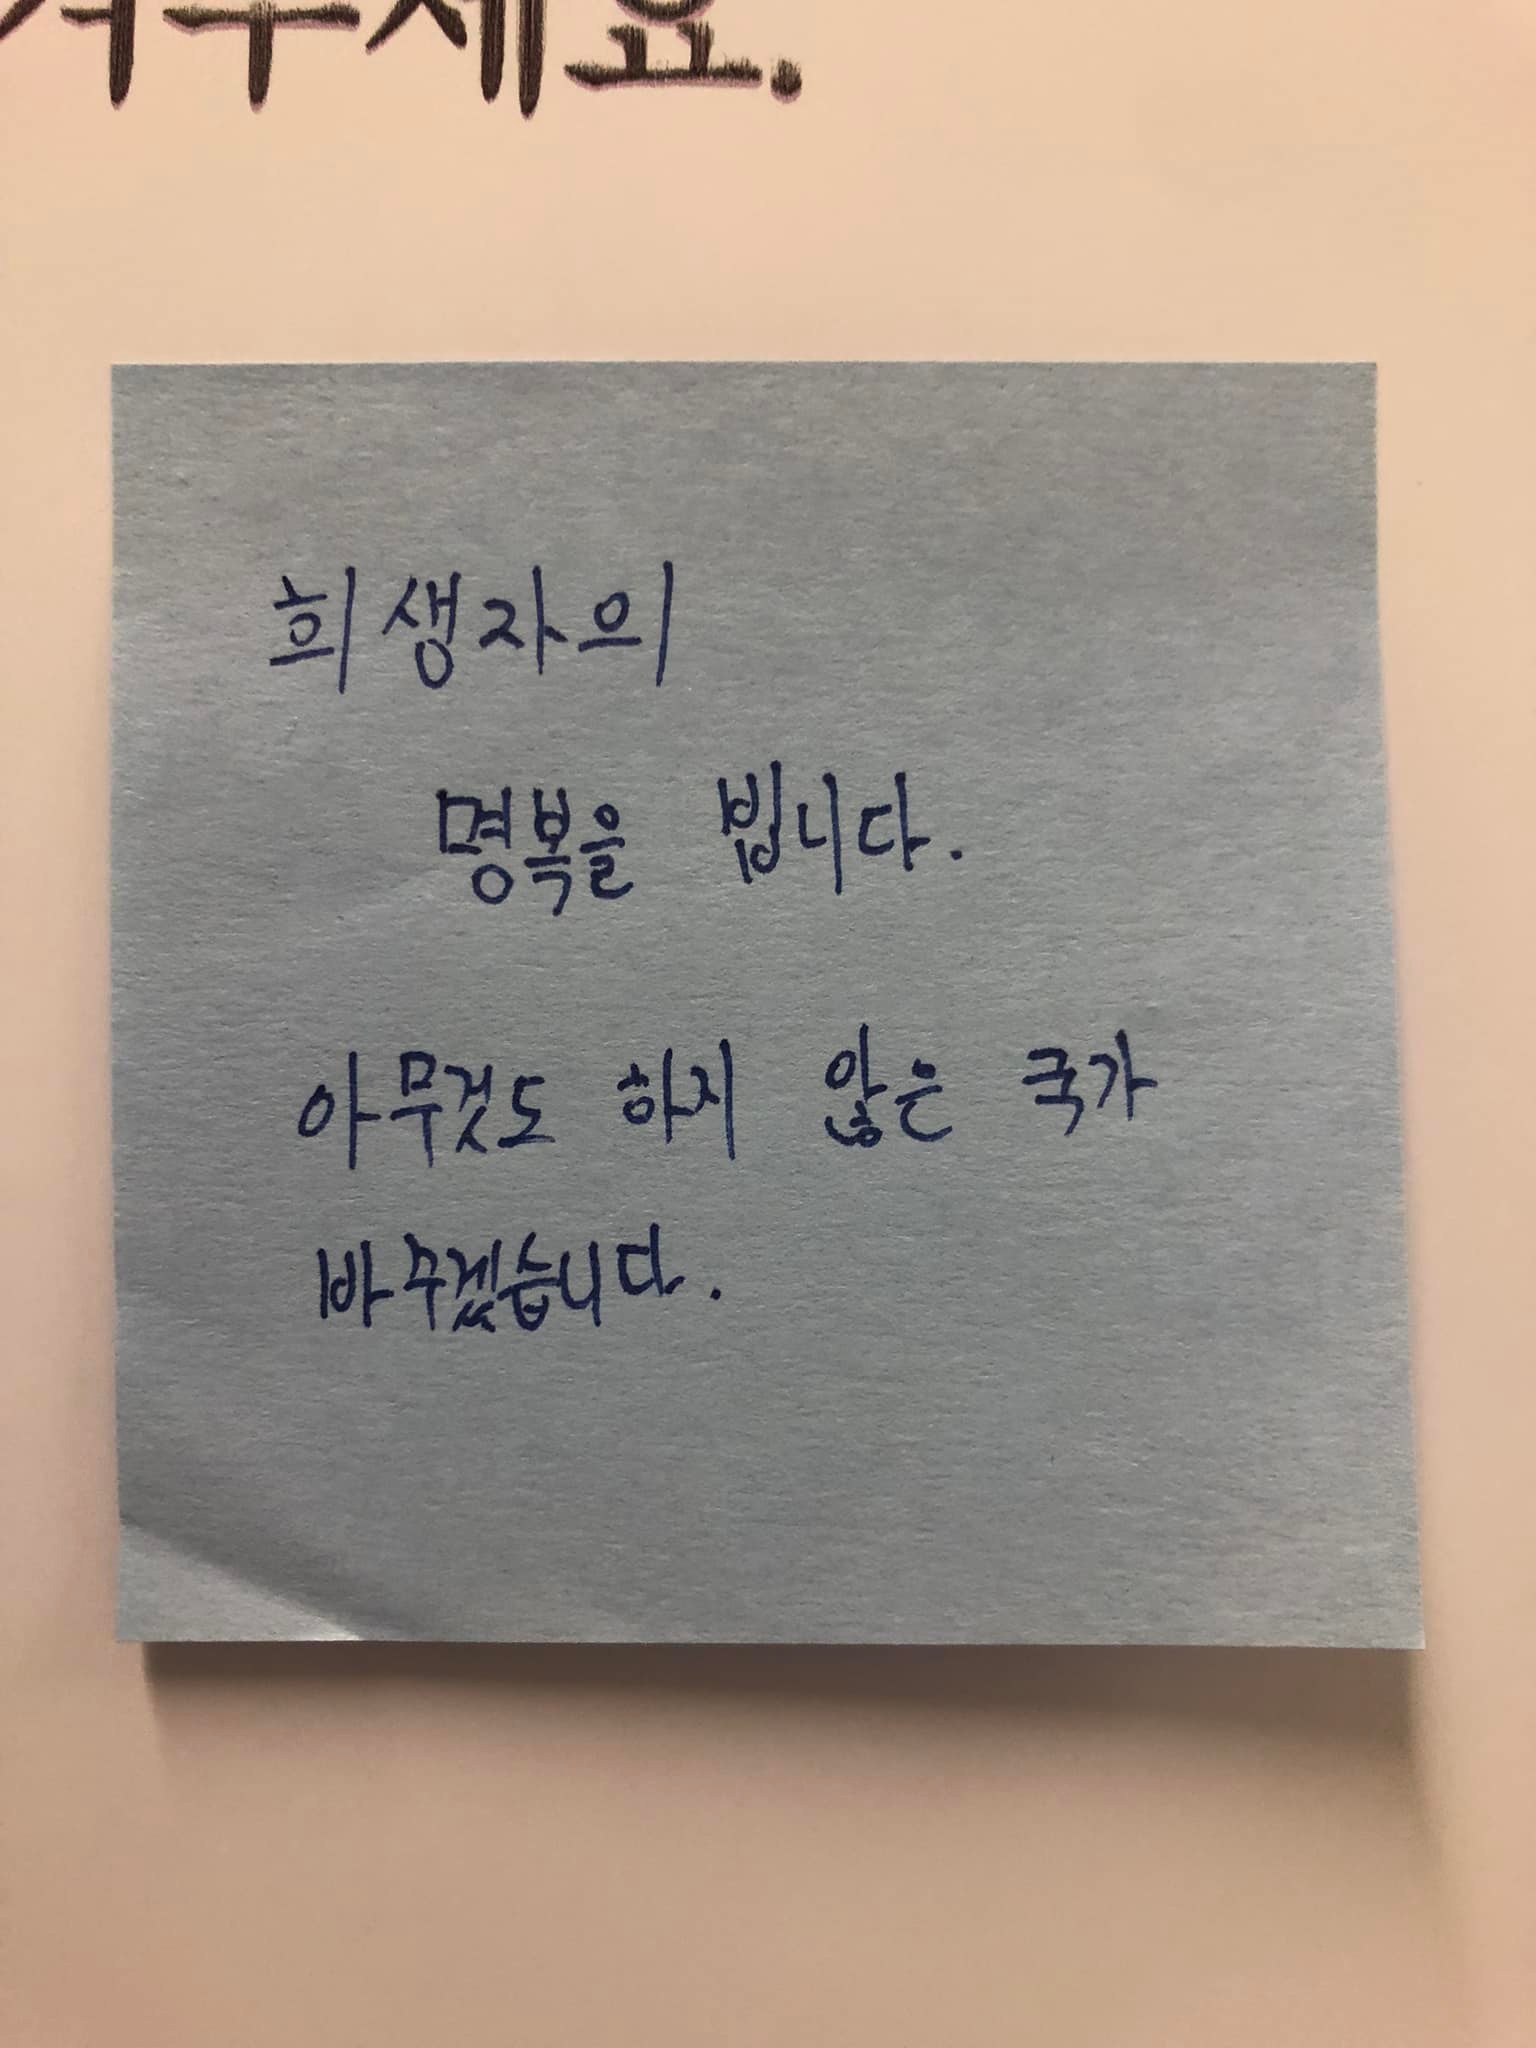 적주세요.
희생자의
명복을 빕니다.
아무것도 하지 않은 국가
바꾸겠습니다.